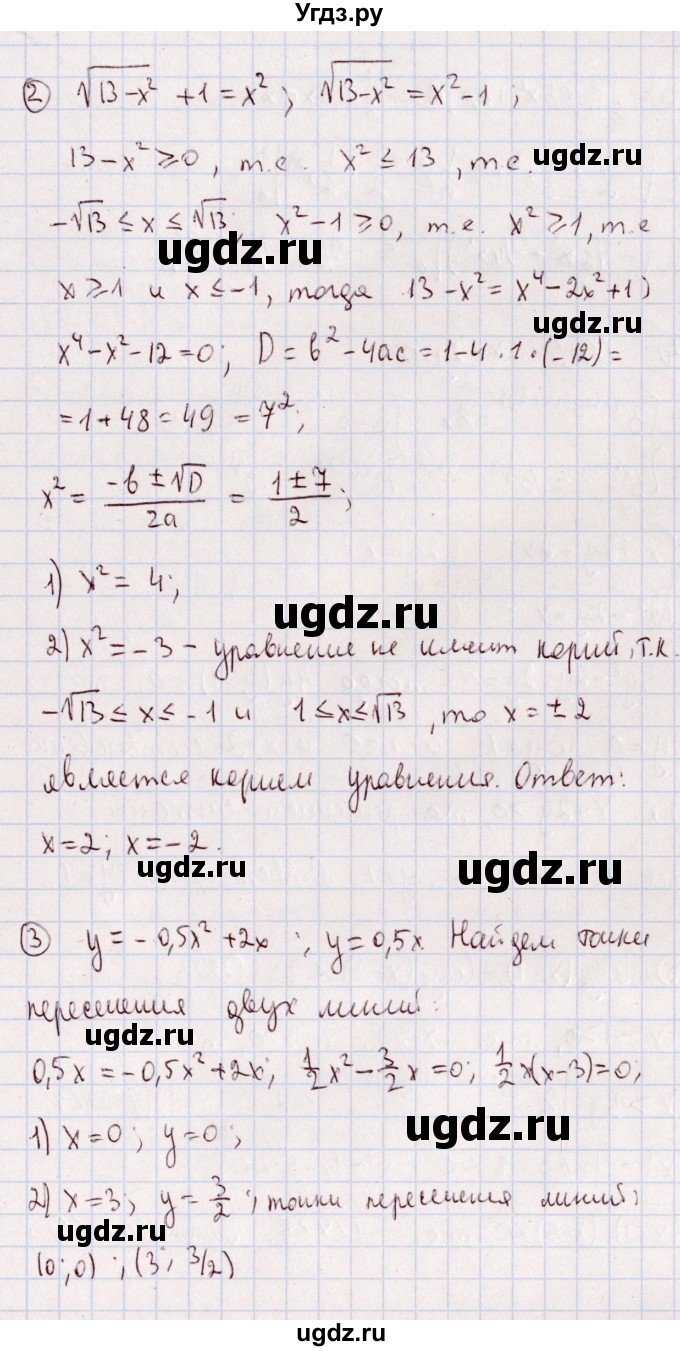 Угдз.ру
② √13-x² + 1 = x² ; √13-x² = x²-1 ;
13-x² ⩾ 0, т.е. x² ≤ 13, т.е. ugdz.ru
-√13 ≤ x ≤ √13; x²-1 ⩾ 0, т.е. x² ⩾ 1, т.е
ugdz.ru
x ⩾ 1 и x ≤ -1, тогда 13-x² = x⁴-2x²+1)
x⁴-x²-12=0; D = b²-4ac = 1-4·1·(-12) =
= 1+48 = 49 = 7²;
x² = (-b ± √D)/2a = (1±7)/2 ;
1) x² = 4;
ugdz.ru
2) x² = -3 - уравнение не имеит корний, т.к.
-√13 ≤ x ≤ -1 и 1 ≤ x ≤ √13, то x = ± 2
является корнем уравнения. Ответ:
x=2; x=-2.
ugdz.ru ugdz.ru
③ y = -0,5x² + 2x ; y = 0,5x. Найдем точки
пересечения двух линий:
ugdz.ru
0,5x = -0,5x² + 2x; 1/2x² - 3/2x = 0; 1/2x(x-3)=0;
1) x=0; y=0;
ugdz.ru
2) x=3; y = 3/2; точки пересечения линий:
ugdz.ru
(0;0) ; (3; 3/2)
ugdz.ru